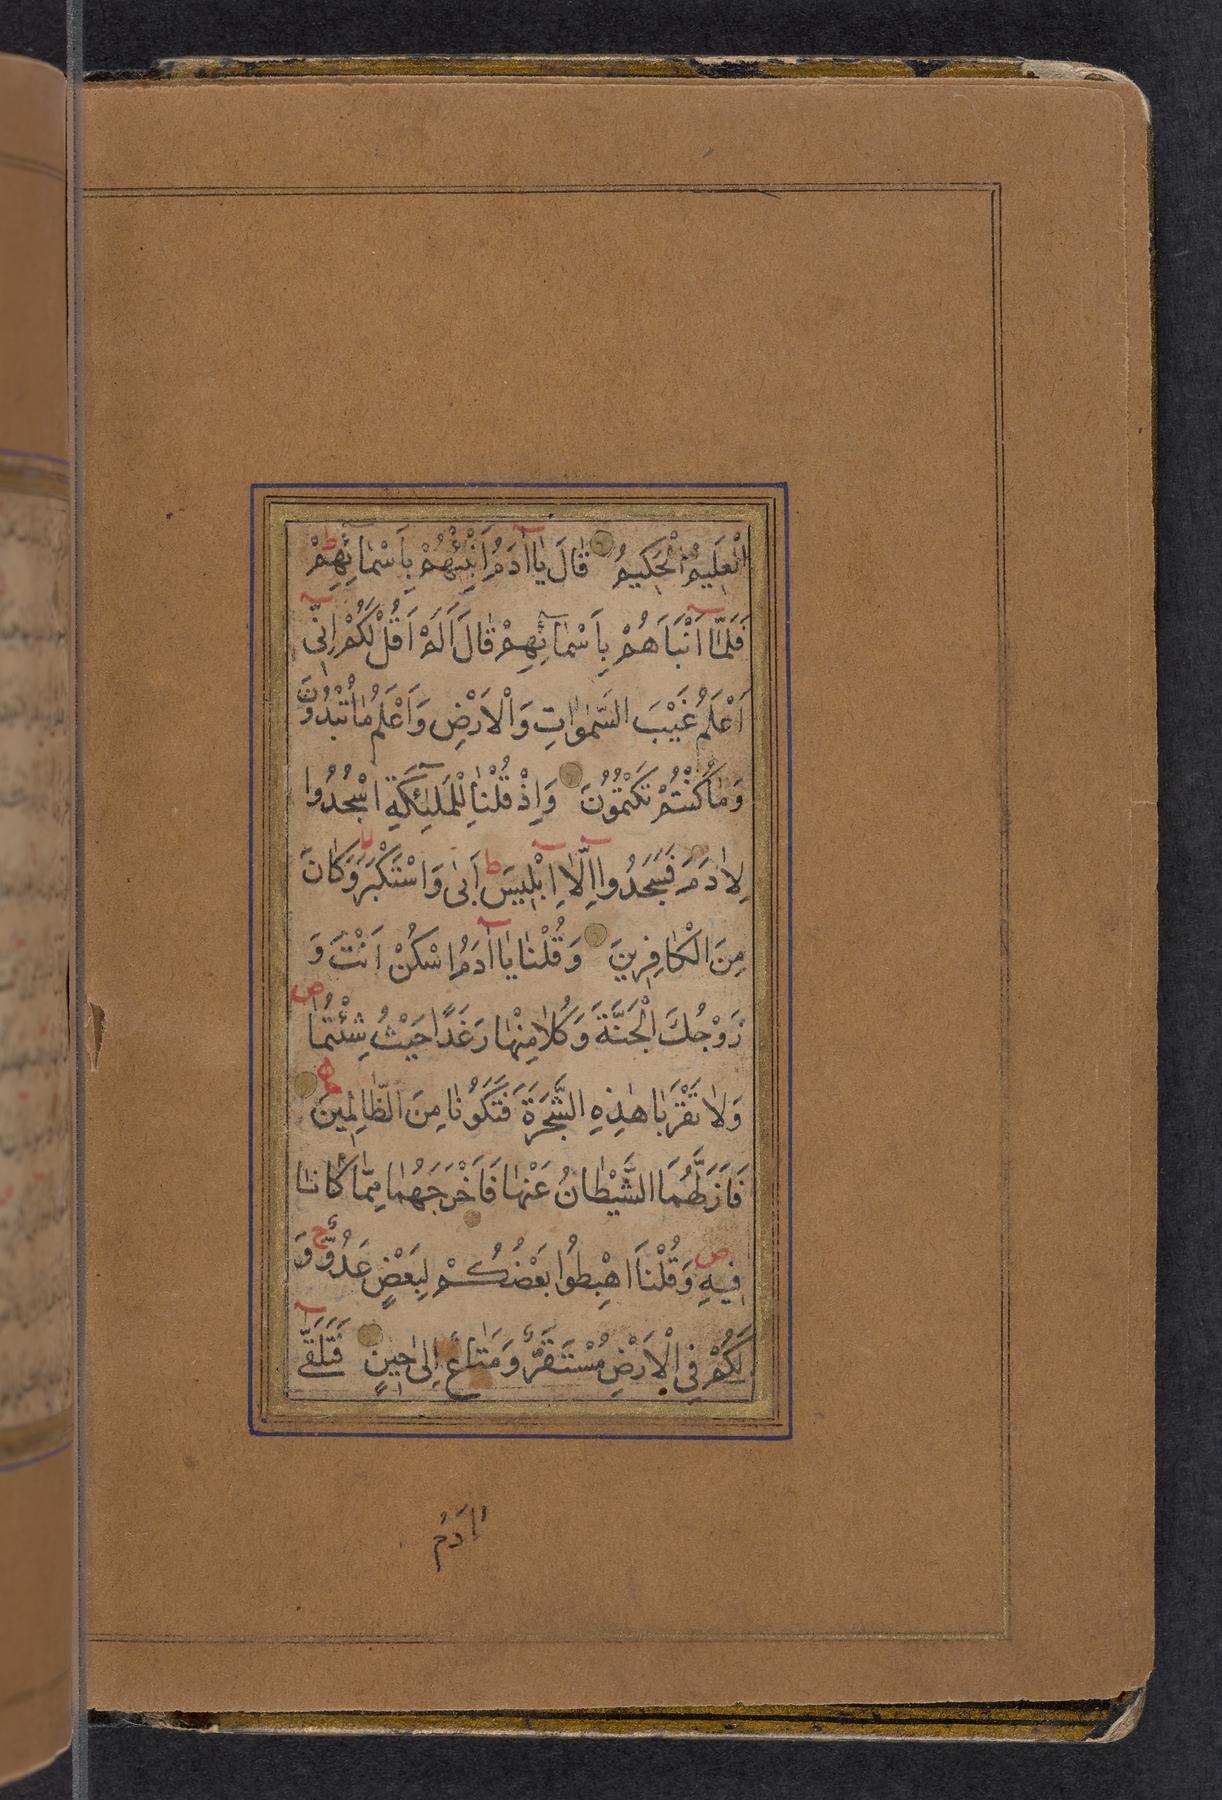 الْعَلِيمُ الْحَكِيمُ قَالَ يَا اٰدَمُ اَنْبِئْهُمْ بِاَسْمَائِهِمْ
فَلَمَّا اَنْبَاَهُمْ بِاَسْمَائِهِمْ قَالَ اَلَمْ اَقُلْ لَكُمْ اِنِّى
اَعْلَمُ غَيْبَ السَّمٰوَاتِ وَالْاَرْضِ وَاَعْلَمُ مَا تُبْدُونَ
وَمَا كُنْتُمْ تَكْتُمُونَ وَاِذْ قُلْنَا لِلْمَلٰئِكَةِ اسْجُدُوا
لِاٰدَمَ فَسَجَدُوا اِلَّا اِبْلِيسَ ط اَبٰى وَاسْتَكْبَرَ وَكَانَ
مِنَ الْكَافِرِينَ وَقُلْنَا يَا اٰدَمُ اسْكُنْ اَنْتَ وَ
زَوْجُكَ الْجَنَّةَ وَكُلَا مِنْهَا رَغَدًا حَيْثُ شِئْتُمَا ص
وَلَا تَقْرَبَا هٰذِهِ الشَّجَرَةَ فَتَكُونَا مِنَ الظَّالِمِينَ
فَاَزَلَّهُمَا الشَّيْطَانُ عَنْهَا فَاَخْرَجَهُمَا مِمَّا كَانَا
فِيهِ ص وَقُلْنَا اهْبِطُوا بَعْضُكُمْ لِبَعْضٍ عَدُوٌّ ج وَ
لَكُمْ فِى الْاَرْضِ مُسْتَقَرٌّ وَمَتَاعٌ اِلٰى حِينٍ فَتَلَقّٰى
اٰدَمُ